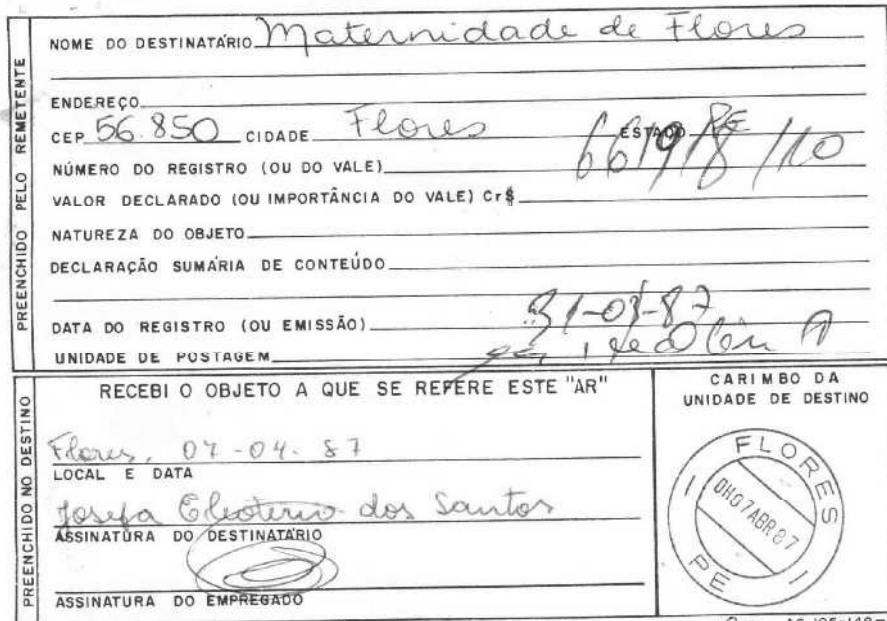 PREENCHIDO PELO REMETENTE
NOME DO DESTINATÁRIO Maternidade de Flores
ENDEREÇO
CEP 56.850 CIDADE Flores ESTADO PE
NÚMERO DO REGISTRO (OU DO VALE)
VALOR DECLARADO (OU IMPORTÂNCIA DO VALE) Cr$
NATUREZA DO OBJETO
DECLARAÇÃO SUMÁRIA DE CONTEÚDO
DATA DO REGISTRO (OU EMISSÃO) 31-03-87
UNIDADE DE POSTAGEM
PREENCHIDO NO DESTINO
RECEBI O OBJETO A QUE SE REFERE ESTE "AR"
Flores, 07-04-87
LOCAL E DATA
Josefa Eleoterio dos Santos
ASSINATURA DO DESTINATÁRIO
ASSINATURA DO EMPREGADO
CARIMBO DA
UNIDADE DE DESTINO
FLORES
07 ABR 87
PE